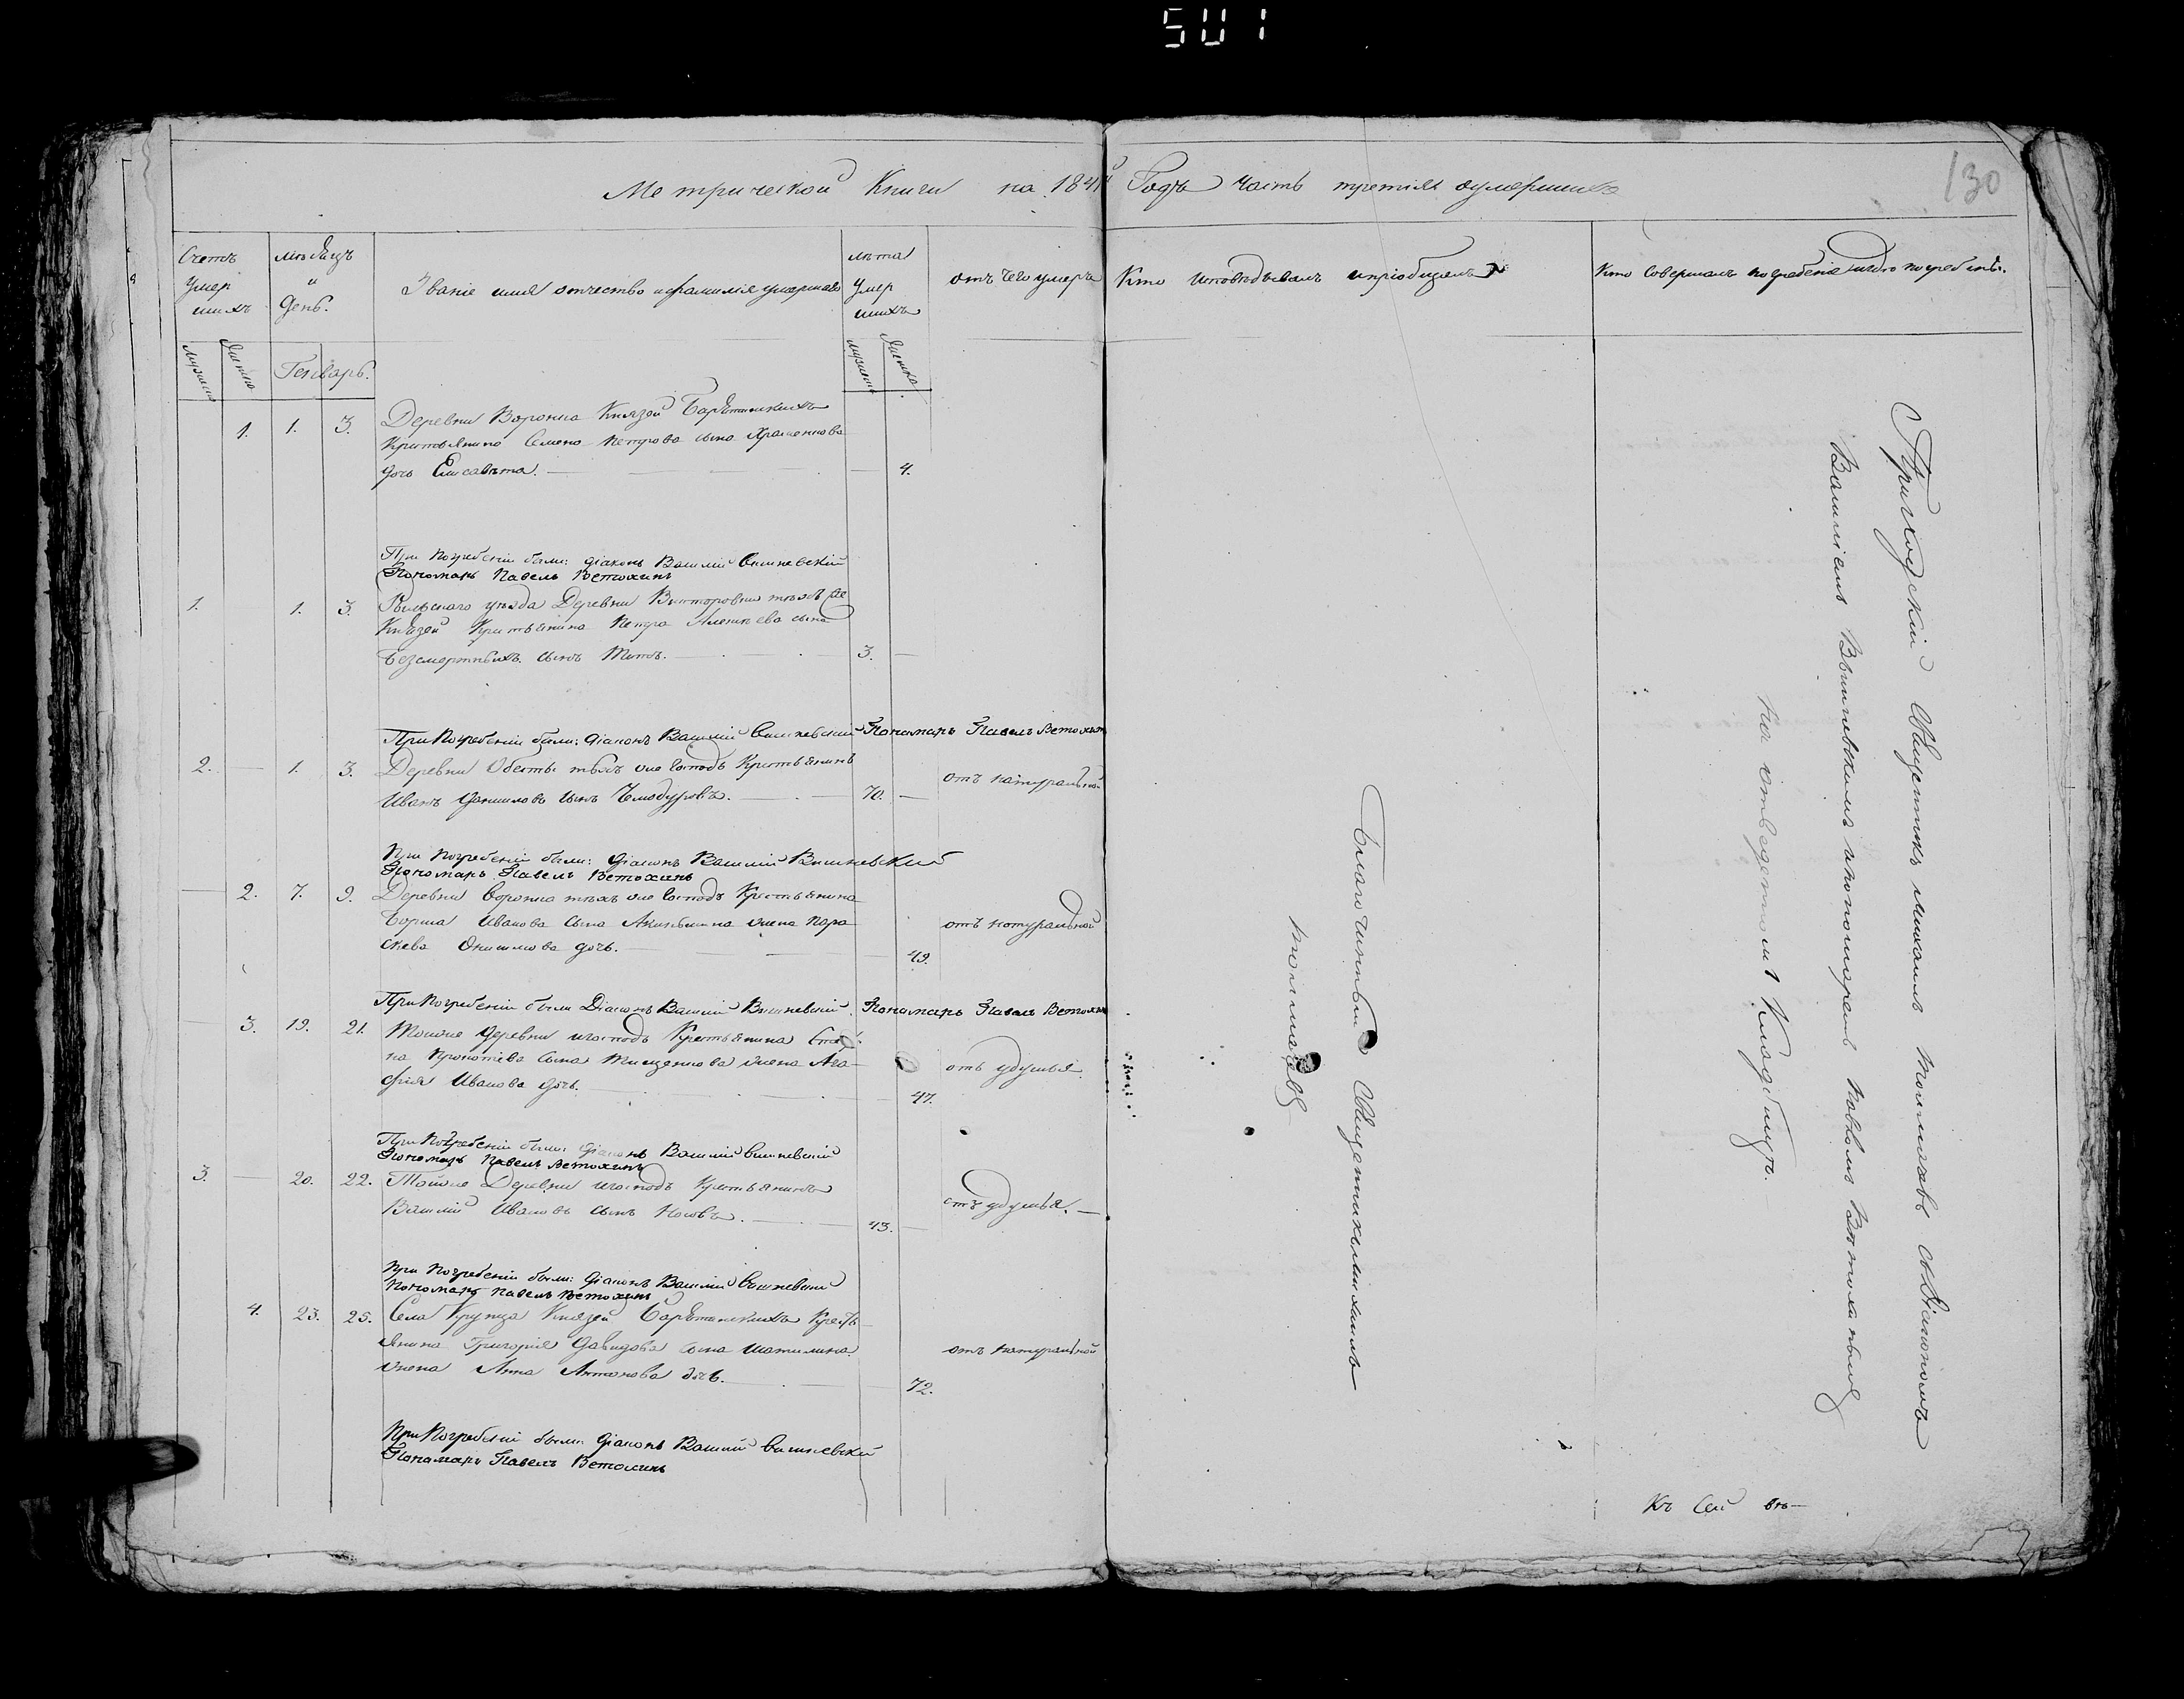 501
130
Метрической Книги на 1841й Годъ часть третія оумершихъ
Счетъ Умершихъ
мѣсяцъ и день.
Званіе имя отчество и фамилія умершаго
лѣта Умершихъ
отъ чего умеръ
Кто исповѣдывалъ и пріобщалъ
Кто совершалъ погребеніе и гдѣ погребены.
Генварь.
1. 1. 3. Деревни Воронка Князей Барятинскихъ
Крестьянина Семена Петрова сына
дочь Елисавета. 4.
При Погребеніи были: діаконъ Василій Вишневскій
Пономарь Павелъ Ветохинъ
1. 1. 3. Рыльскаго уѣзда Деревни Викторовки тѣхъ же
Князей Крестьянина Петра Алексѣева сына
Безсмертныхъ сынъ Титъ. 3.
При Погребеніи были: діаконъ Василій Вишневскій Пономарь Павелъ Ветохинъ
2. 1. 3. Деревни Обесты тѣхъ же господъ Крестьянинъ
Иванъ Даниловъ сынъ 70. отъ натуральной
При Погребеніи были: діаконъ Василій Вишневский
Пономарь Павелъ Ветохинъ
2. 7. 9. Деревни Воронка тѣхъ же господъ Крестьянина
Бориса Иванова сына жена Параскева
дочь. 49. отъ натуральной
При Погребеніи были Діаконъ Василій Вишневскій Пономарь Павелъ Ветохинъ
3. 19. 21. Тойже деревни и господъ Крестьянина
Прокофева сына Тищенкова жена Агафія
Иванова дочь. 47. отъ удушья
При Погребеніи были: діаконъ Василій Вишневскій
Пономарь Павелъ Ветохинъ
3. 20. 22. Тойже Деревни и господъ Крестьянинъ
Василій Ивановъ сынъ Носовъ. 43. отъ удушья.
При Погребеніи были: діаконъ Василій Вишневскій
Пономарь Павелъ Ветохинъ
4. 23. 25. Села Крупца Князей Барятинскихъ Крестьянина
Григорія Давидова сына Шатилина
жена Анна Антонова дочь. 72. отъ натуральной
При Погребеніи были діаконъ Василій Вишневскій
Пономарь Павелъ Ветохинъ
Благочинный Священникъ Михаилъ
Приходскій Священникъ Михаилъ съ Діакономъ
Василіемъ Вишневскимъ и пономаремъ Павломъ Ветохинымъ
на отведенномъ Кладбищѣ.
Къ Сей